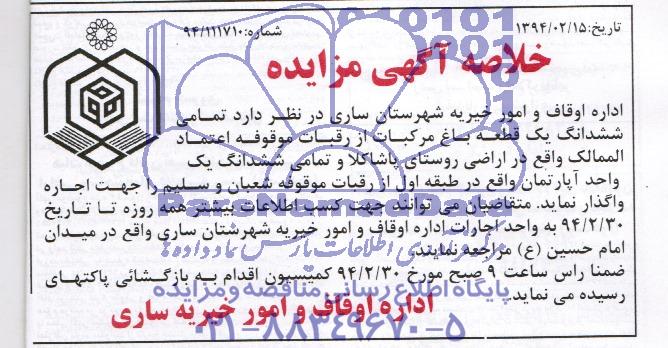 تاریخ:۱۳۹۴/۰۲/۱۵
شماره:۹۴/۱۱۱۷۱۰
خلاصه آگهی مزایده
اداره اوقاف و امور خیریه شهرستان ساری در نظر دارد تمامی
ششدانگ یک قطعه باغ مرکبات از رقبات موقوفه اعتماد
الممالک واقع در اراضی روستای پاشاکلا و تمامی ششدانگ یک
واحد آپارتمان واقع در طبقه اول از رقبات موقوفه شعبان و سلیم را جهت اجاره
واگذار نماید. متقاضیان می توانند جهت کسب اطلاعات بیشتر همه روزه تا تاریخ
۹۴/۲/۳۰ به واحد اجارات اداره اوقاف و امور خیریه شهرستان ساری واقع در میدان
امام حسین (ع) مراجعه نمایند.
ضمنا راس ساعت ۹ صبح مورخ ۹۴/۲/۳۰ کمیسیون اقدام به بازگشائی پاکتهای
رسیده می نماید.
اداره اوقاف و امور خیریه ساری
ParsNamadData
پایگاه اطلاع رسانی مناقصه و مزایده
۰۲۱-۸۸۳۴۹۶۷۰-۵